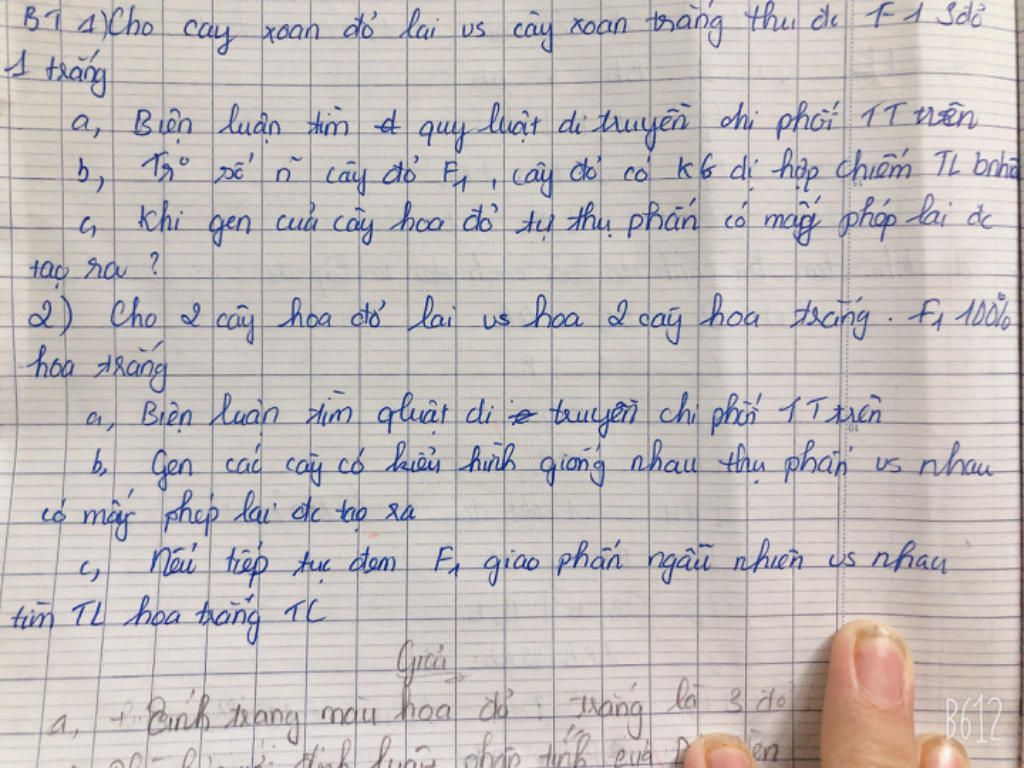 BT 1) Cho cay xoan đỏ lai vs cây xoan trắng thu đc F1 3đỏ
1 trắng
a, Biện luận tìm quy luật di truyền chi phối TT trên
b, Tr số n cây đỏ F1, cây đỏ có KG dị hợp chiếm TL bnhiê
c, Khi gen của cây hoa đỏ tự thụ phấn có mấy pháp lai đc
tạo ra ?
2) Cho 2 cây hoa đỏ lai vs hoa 2 cây hoa trắng. F1 100%
hoa trắng
a, Biện luận tìm qluật di truyền chi phối TT trên
b, Gen các cây có kiểu hình giống nhau thụ phấn vs nhau
có mấy phép lai đc tạo ra
c, Nếu tiếp tục đem F1 giao phấn ngẫu nhiên vs nhau
tìm TL hoa trắng TC
Giải
a, + tính trạng màu hoa đỏ : trắng là 3 đỏ
định luật phân tính của
B612